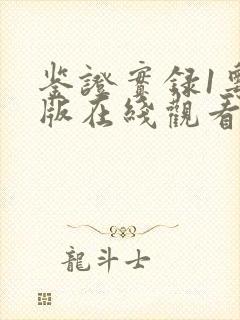 鉴證實録1粵
版在綫觀看
龍斗士